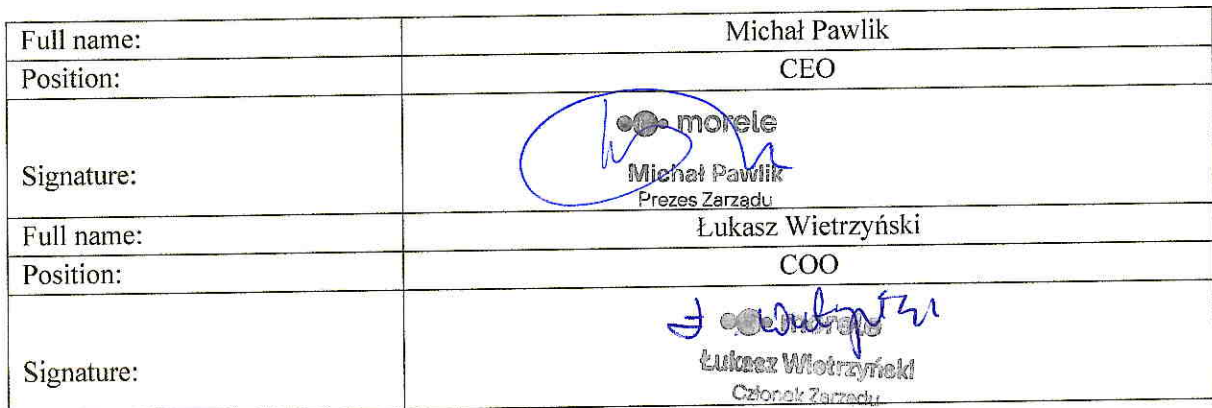 Full name: Michał Pawlik
Position: CEO
morele
Signature: Michał Pawlik
Prezes Zarządu
Full name: Łukasz Wietrzyński
Position: COO
morele
Signature: Łukasz Wietrzyński
Członek Zarządu